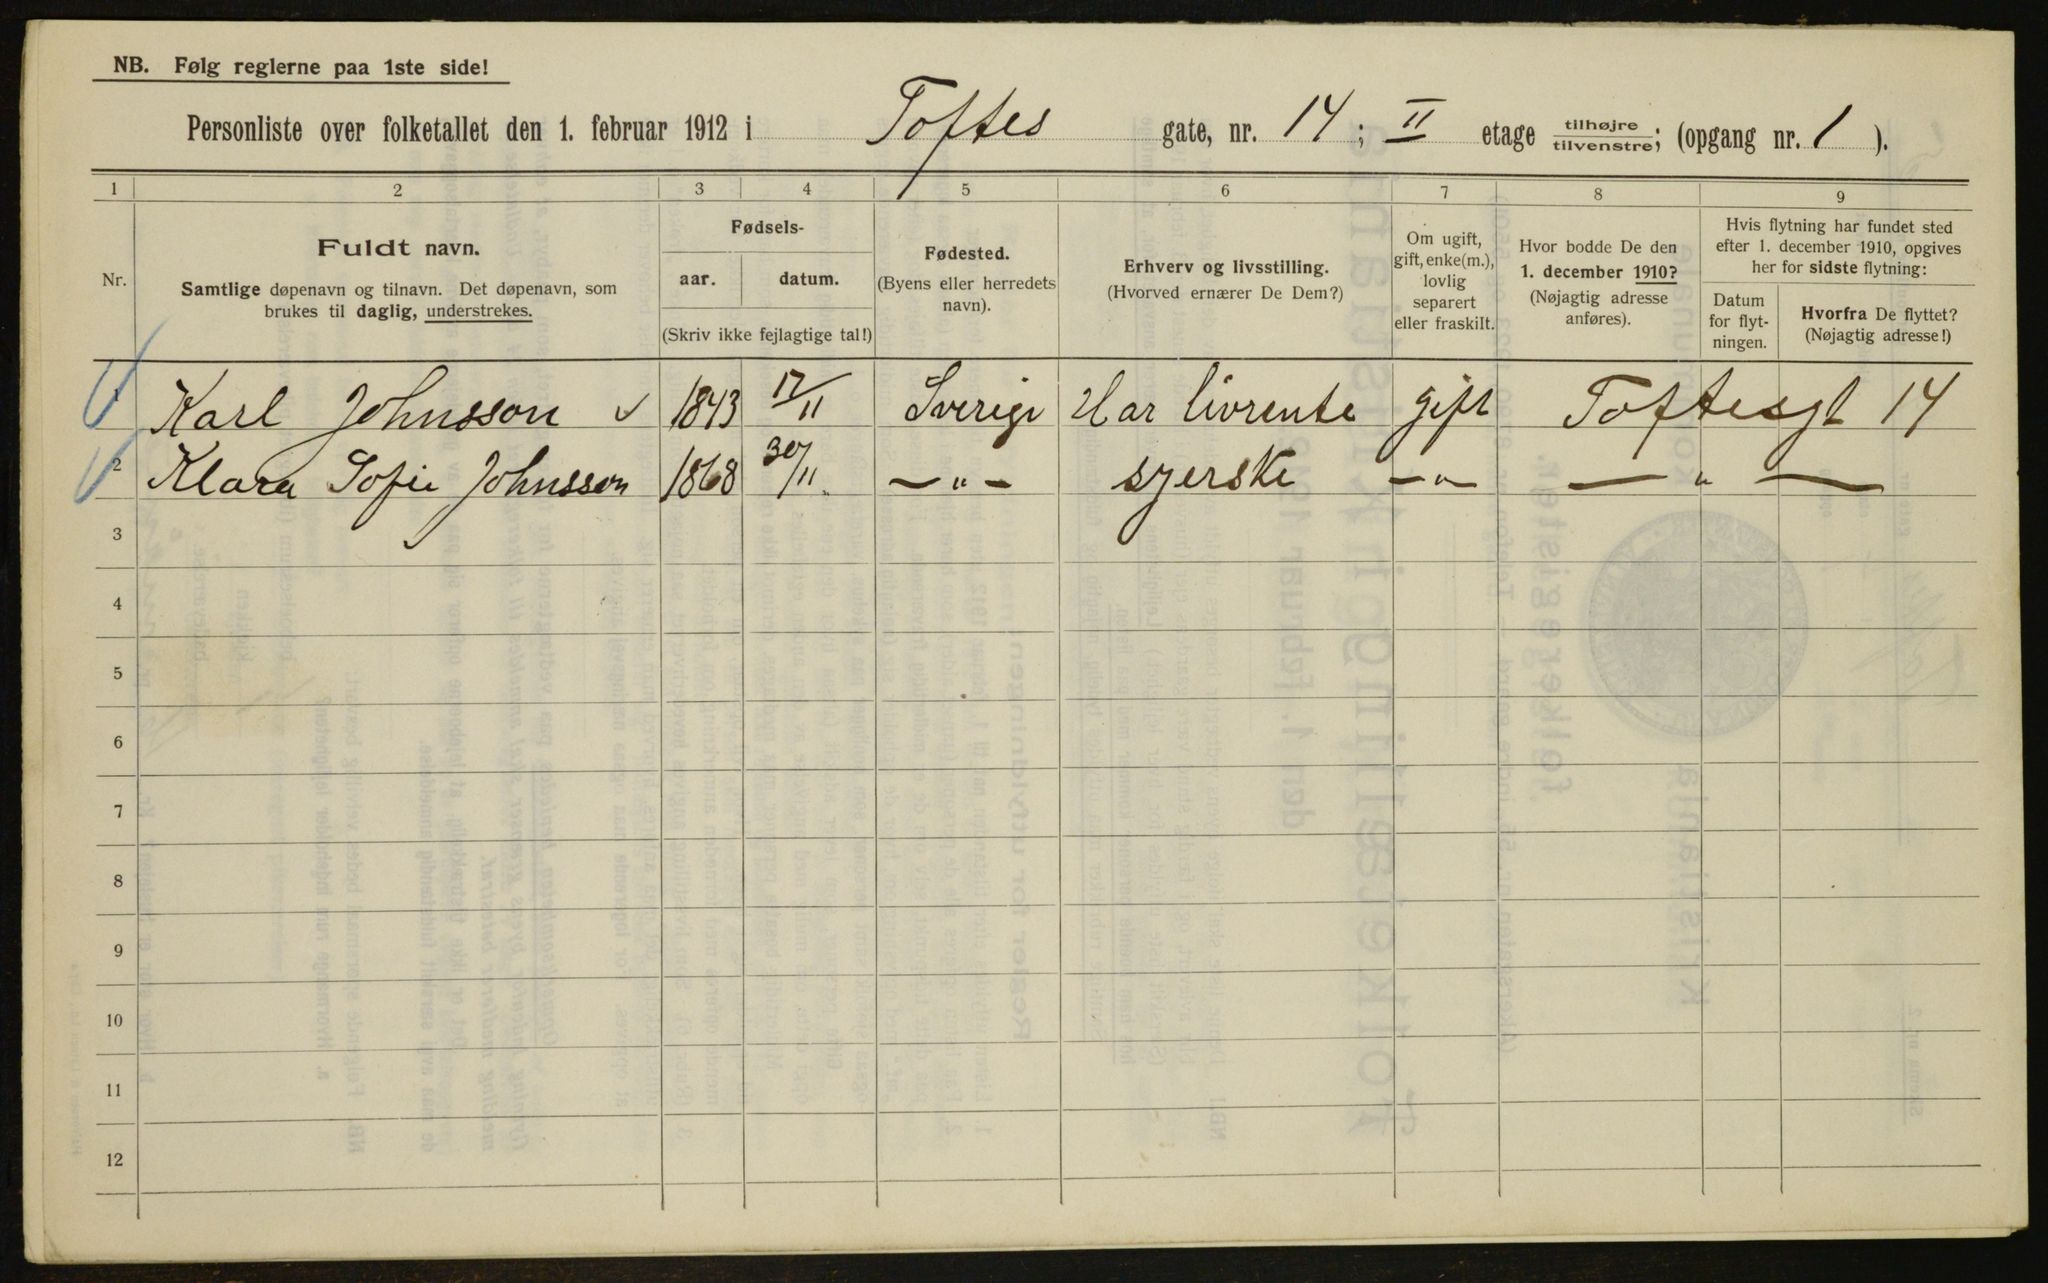 NB. Følg reglerne paa 1ste side!
Personliste over folketallet den 1. februar 1912 i Toftes gate, nr. 14; II etage tilhøjre tilvenstre; (opgang nr. 1).
1 2 3 4 5 6 7 8 9
Nr.
Fuldt navn.
Samtlige døpenavn og tilnavn. Det døpenavn, som
brukes til daglig, understrekes.
Fødsels-
aar. datum.
(Skriv ikke fejlagtige tal!)
Fødested.
(Byens eller herredets
navn).
Erhverv og livsstilling.
(Hvorved ernærer De Dem?)
Om ugift,
gift, enke(m.),
lovlig
separert
eller fraskilt.
Hvor bodde De den
1. december 1910?
(Nøjagtig adresse
anføres).
Hvis flytning har fundet sted
efter 1. december 1910, opgives
her for sidste flytning:
Datum
for flyt-
ningen.
Hvorfra De flyttet?
(Nøjagtig adresse!)
1 Karl Johnsson 1843 17/11 Sverige Har livrente gift Toftesgt 14
2 Klara Sofie Johnsson 1868 30/11 —"— syerske —"— —"—
3
4
5
6
7
8
9
10
11
12